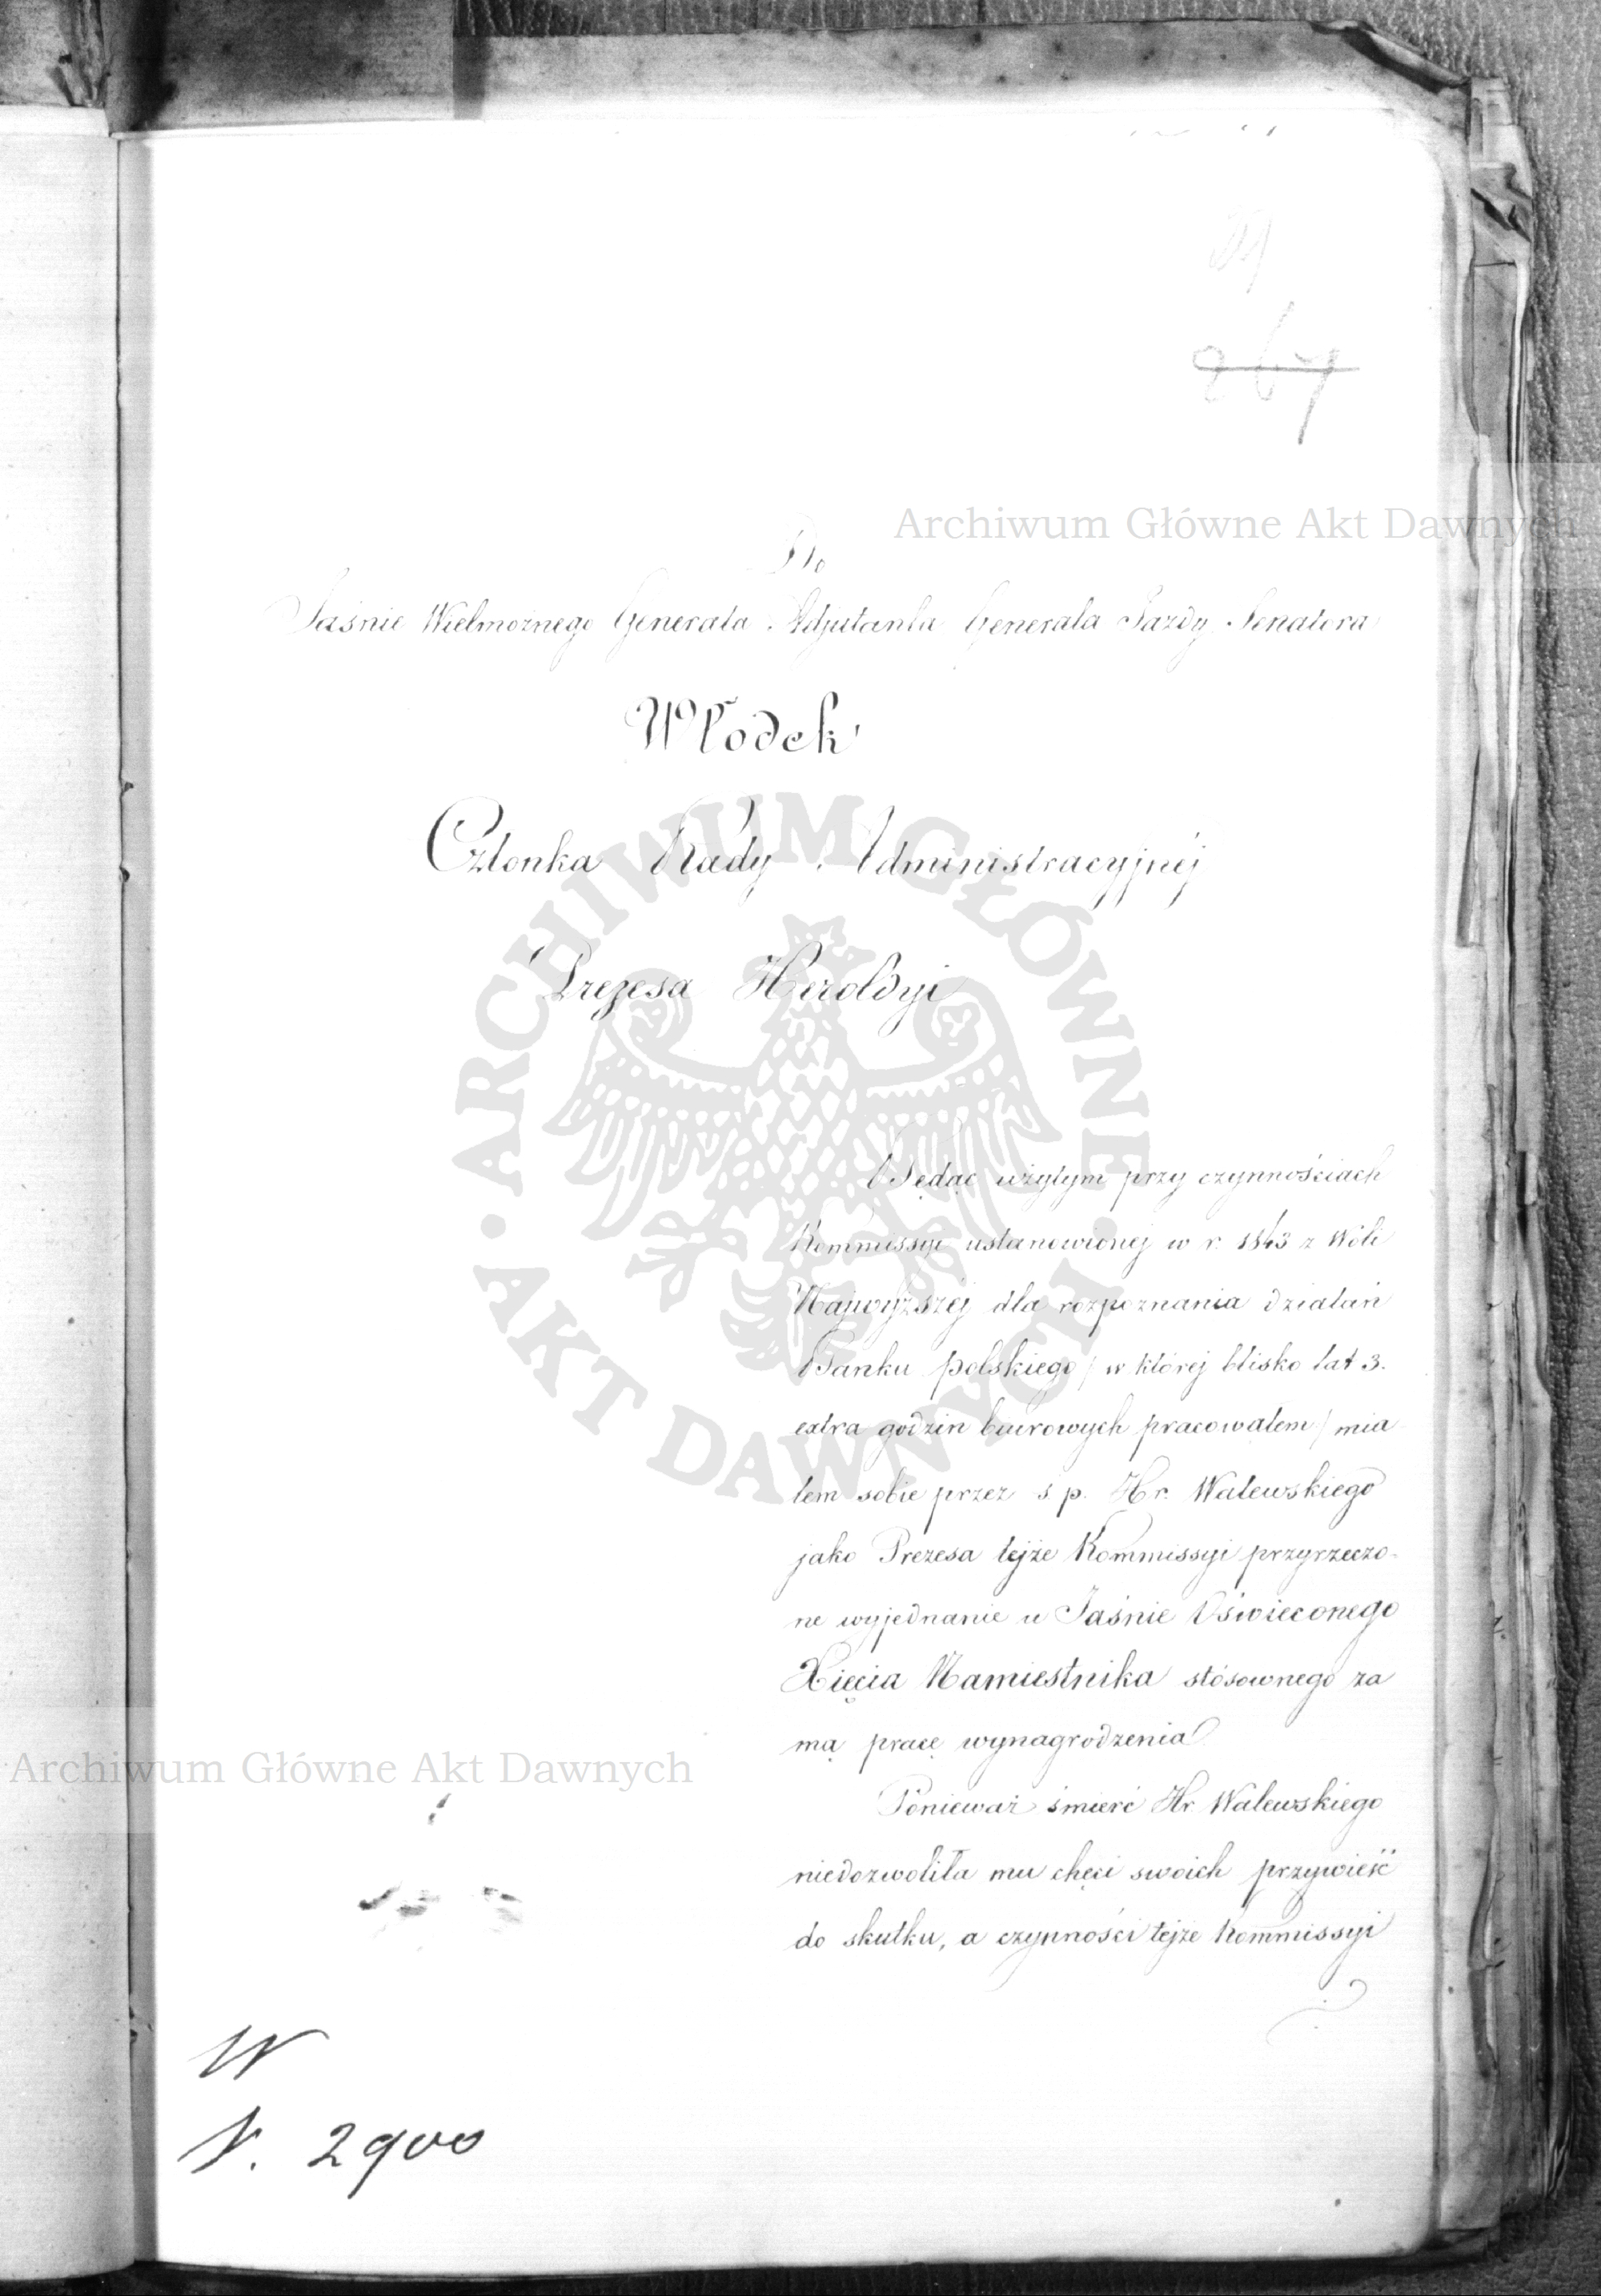 267
Archiwum Główne Akt Dawnych
Do
Jaśnie Wielmożnego Generała Adjutanta Generała Jazdy Senatora
Włodek
Członka Rady Administracyjnéj
Prezesa Heroldyi
ARCHIWUM GŁÓWNE • AKT DAWNYCH •
Będąc użytym przy czynnościach
Kommissyi ustanowionej w r. 1843 z Woli
Najwyższéj dla rozpoznania działań
Banku polskiego / w której blisko lat 3.
extra godzin biurowych pracowałem / mia
łem sobie przez ś p. Hr. Walewskiego
jako Prezesa tejże Kommissyi przyrzeczo-
ne wyjednanie u Jaśnie Oświeconego
Xięcia Namiestnika stósownego za
mą pracę wynagrodzenia
Ponieważ śmierć Hr Walewskiego
niedozwoliła mu chęci swoich przywieść
do skutku, a czynności tejże Kommissyi
Archiwum Główne Akt Dawnych
W
N. 2900